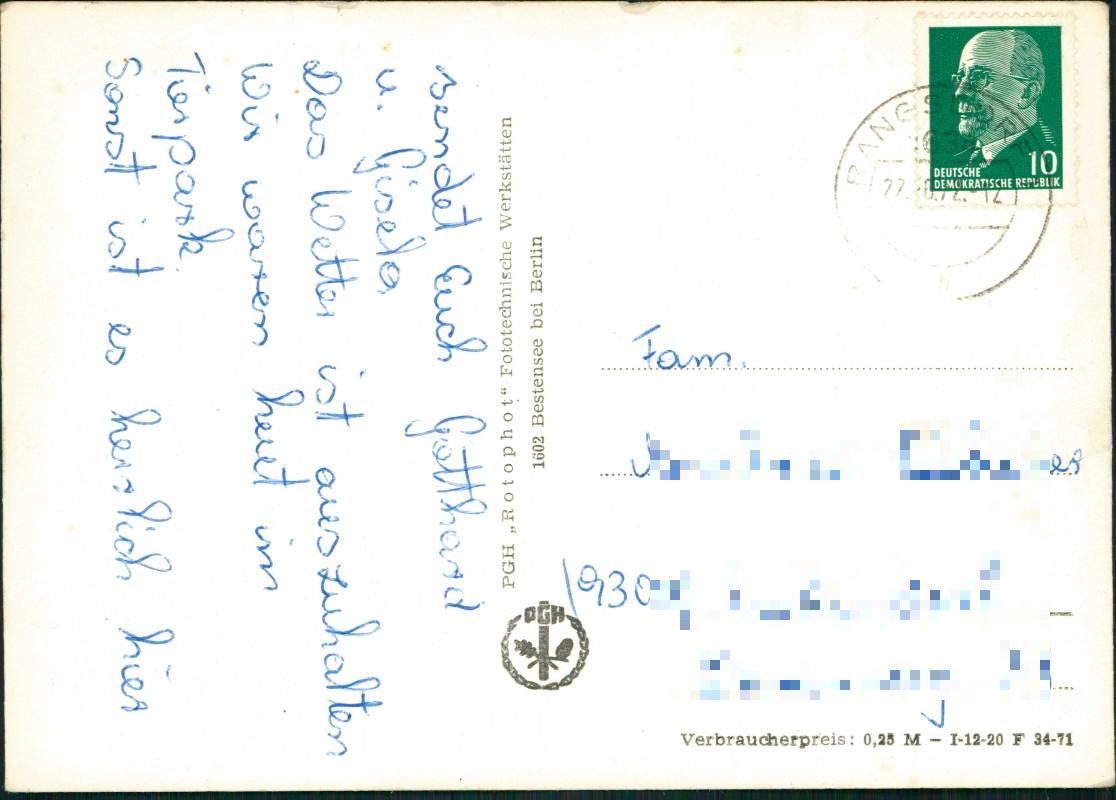 sendet Euch Gotthard
u. Gisela
Das Wetter ist auszuhalten
Wir waren heut im
Tierpark.
Sonst ist es herrlich hier
PGH „Rotophot“ Fototechnische Werkstätten
1602 Bestensee bei Berlin
PGH
10
DEUTSCHE
DEMOKRATISCHE REPUBLIK
RANGSDORF
Fam.
Verbraucherpreis: 0,25 M – I-12-20 F 34-71